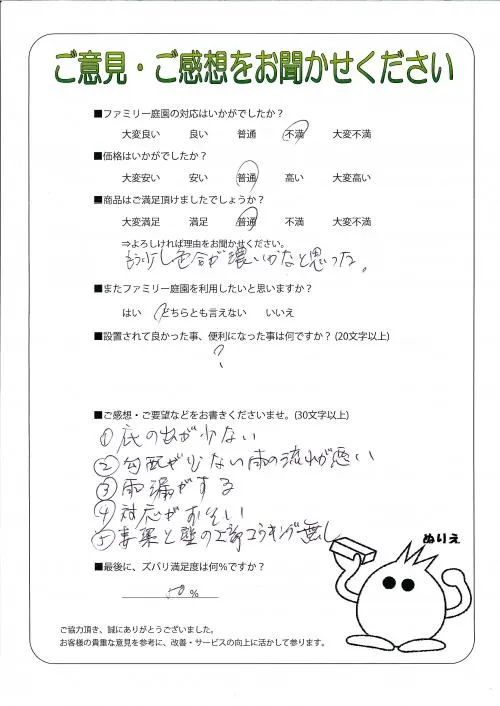 ご意見・ご感想をお聞かせください
■ファミリー庭園の対応はいかがでしたか？
大変良い 良い 普通 不満 大変不満
■価格はいかがでしたか？
大変安い 安い 普通 高い 大変高い
■商品はご満足頂けましたでしょうか？
大変満足 満足 普通 不満 大変不満
⇒よろしければ理由をお聞かせください。
もう少し色合が濃いかなと思った。
■またファミリー庭園を利用したいと思いますか？
はい どちらとも言えない いいえ
■設置されて良かった事、便利になった事は何ですか？(20文字以上)
?
■ご感想・ご要望などをお書きくださいませ。(30文字以上)
①庇の出が少ない
②勾配が少ない雨の流れが悪い
③雨漏がする
④対応がおそい
⑤垂葉と壁の上部コウキング無し
ぬりえ
■最後に、ズバリ満足度は何％ですか？
50 %
ご協力頂き、誠にありがとうございました。
お客様の貴重な意見を参考に、改善・サービスの向上に活かして参ります。